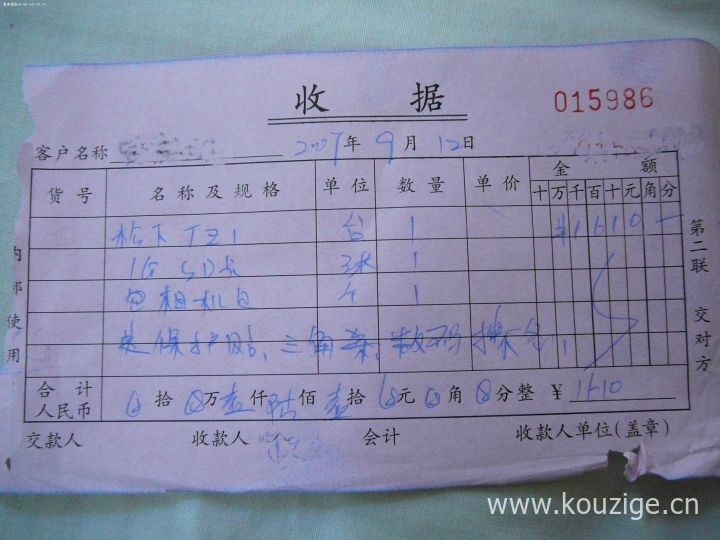 收 据
015986
客户名称 2007年9月12日
货号 名称及规格 单位 数量 单价 金额
十万千百十元角分
松下 TZ1 台 1 ¥1610一
1G SD卡 张 1
相机包 个 1
送保护贴,三角架,数码擦
合计人民币 拾 万壹仟陆佰壹拾 元 角 分整 ¥1610
交款人 收款人 会计 收款人单位(盖章)
内部使用
第二联 交对方
www.kouzige.cn